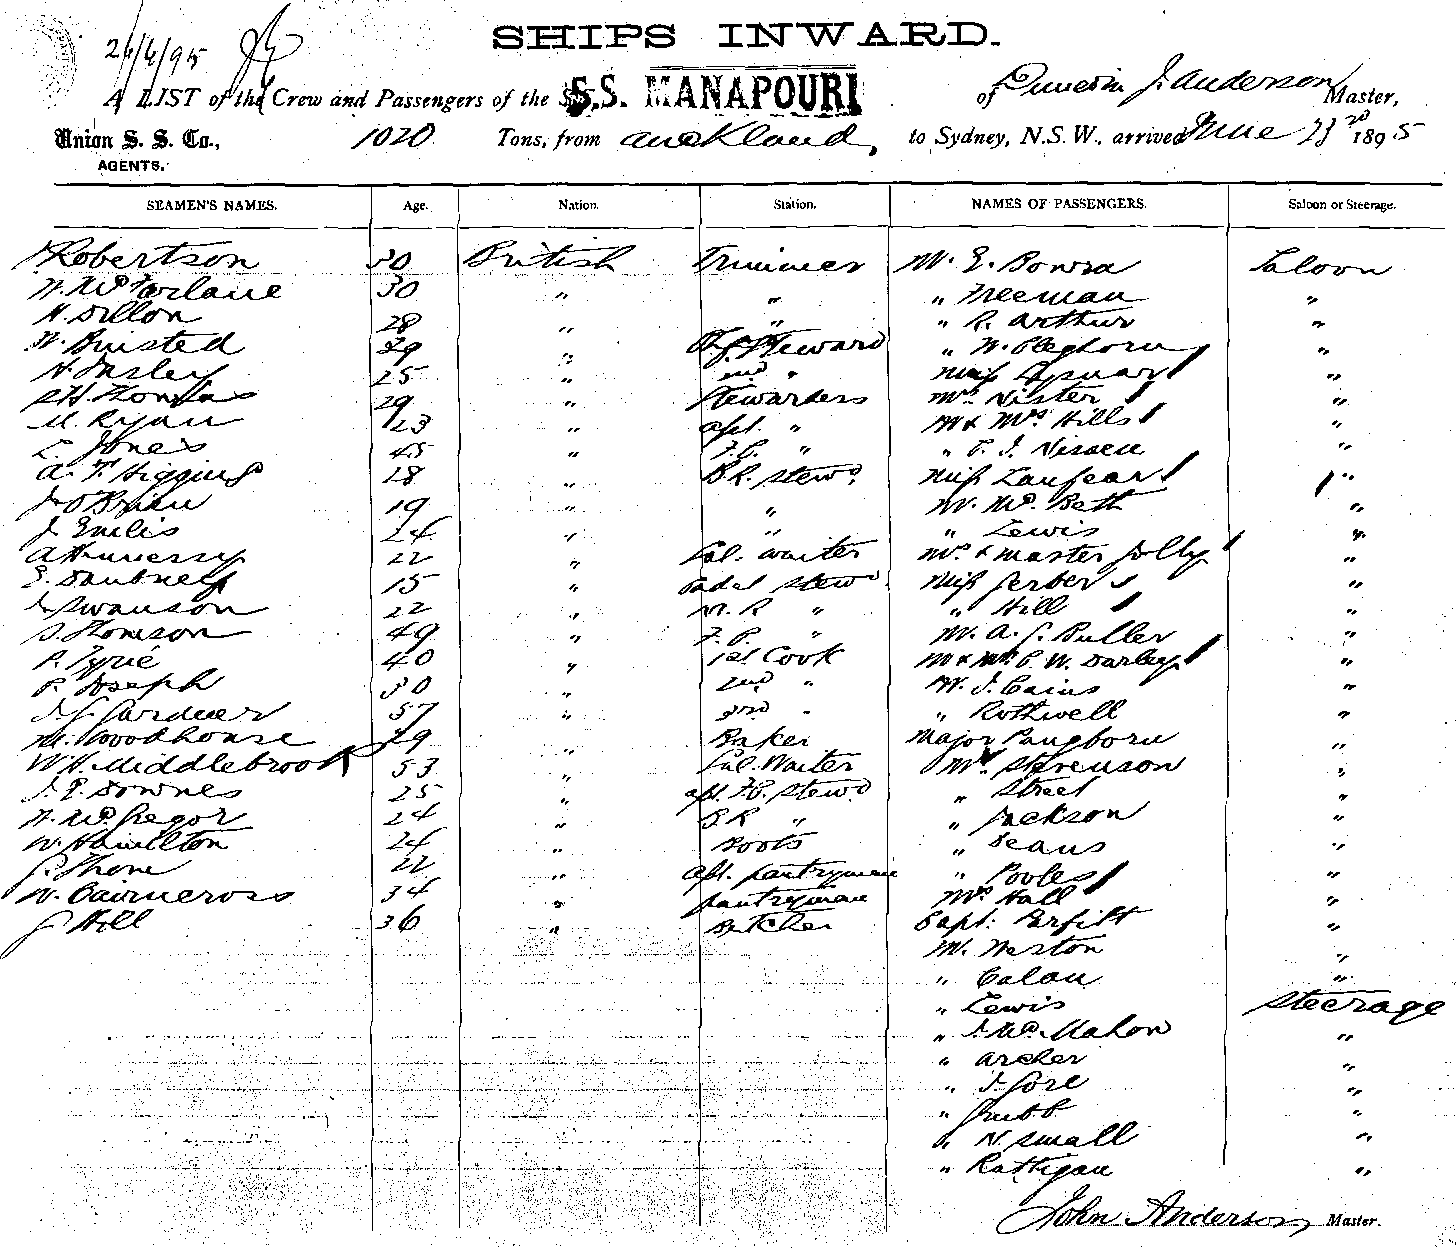 SHIPS INWARD.
26/6/95
A LIST of the Crew and Passengers of the S.S. MANAPOURI of Dunedin J. Anderson Master,
Union S. S. Co., 1020 Tons, from Auckland, to Sydney, N.S.W., arrived June 23rd 1895
AGENTS.
SEAMEN'S NAMES. Age. Nation. Station. NAMES OF PASSENGERS. Saloon or Steerage.
Robertson 30 British Trimmer Mr. E. Bowra Saloon
McFarlane 30 " " " Freeman "
Dillon 28 " " " R. Arthur "
W. Buisted 29 " Steward " W. Cleghorn "
H. Insley 25 " 2nd " Miss "
Thomas 29 " Stewardess Mrs "
M. Ryan 23 " aft. " Mr & Mrs Hills "
Jones 45 " F.C. " " Nissen "
A. T. Higgins 18 " B.R. stewd. Miss "
J. O'Brien 19 " " Mr. McBeth "
J. Emlis 24 " " " Lewis "
A Hennessy 22 " Sal. waiter Mrs & Master Jolly "
E. Daubney 15 " stewd. Miss Gerber "
J Swanson 22 " M. R " " Hill "
Thomson 49 " F. C. " Mr. A. J. Buller "
P. Tyrie 40 " 1st Cook Mr & Mrs C. W. Darley "
P. Joseph 30 " 2nd " Mr. J. Cains "
Gardner 57 " 3rd " " Rothwell "
M. Woodhouse 29 " Baker Major Pangborn "
W. H. Middlebrook 53 " Sal. Waiter Mr. Stevenson "
Downes 25 " aft. F.C. stewd " Street "
McGregor 24 " B R " " Jackson "
W. Hamilton 24 " Boots " Deans "
Thom 22 " aft. pantryman " Pooles "
W. Cairncross 34 " pantryman Mrs Hall "
J Hill 36 " Butcher Capt. Parfitt "
Mr. Weston "
" "
" Lewis Steerage
" McMahon "
" Archer "
" J. Gore "
" "
" N. Small "
" Rattigan "
John Anderson Master.